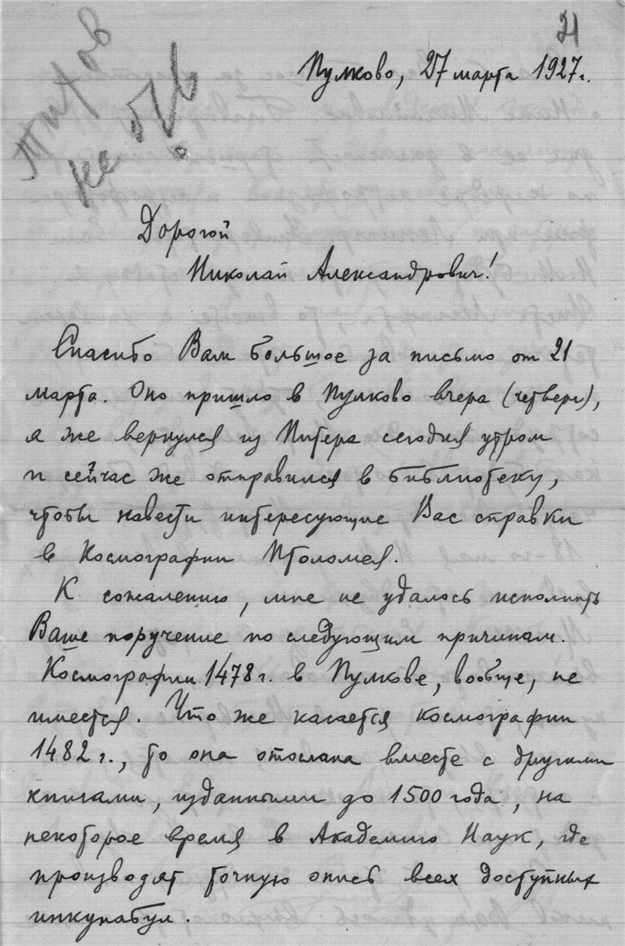 21
Пулково, 27 марта 1927 г.
Дорогой
Николай Александрович!
Спасибо Вам большое за письмо от 21
марта. Оно пришло в Пулково вчера (четверг),
а же вернулся из Питера сегодня утром
и сейчас же отправился в библиотеку,
чтобы навести интересующие Вас справки
в Космографии Птоломея.
К сожалению, мне не удалось исполнить
Ваше поручение по следующим причинам.
Космографии 1478 г. в Пулкове, вообще, не
имеется. Что же касается космографии
1482 г., то она отослана вместе с другими
книгами, изданными до 1500 года, на
некоторое время в Академию Наук, где
производят точную опись всех доступных
инкунабул.